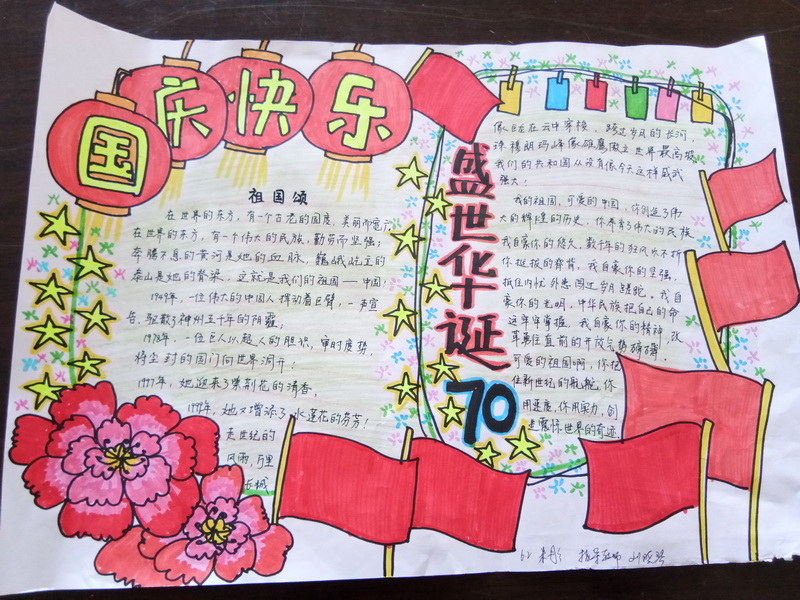 国庆快乐
祖国颂
在世界的东方,有一个古老的国度,美丽而宽广,
在世界的东方,有一个伟大的民族,勤劳而坚强;
奔腾不息的黄河是她的血脉,巍峨屹立的
泰山是她的脊梁,这就是我们的祖国——中国;
1949年,一位伟大的中国人挥动着巨臂,一声宣
告,驱散了神州五千年的阴霾;
1978年,一位巨人以超人的胆识,审时度势,
将尘封的国门向世界洞开!
1997年,她迎来了紫荆花的清香,
1999年,她又增添了水莲花的芬芳!
走世纪的
风雨,万里
长城
盛世华诞
70
像巨龙在云中穿梭,跨过岁月的长河,
珠穆朗玛峰像雄鹰傲立世界最高坡
我们的共和国从没有像今天这样威武
强大!
我的祖国,可爱的中国,你创造了伟
大的辉煌的历史,你养育了伟大的民族
我自豪你的悠久,数千年的狂风吹不折
你挺拔的脊背,我自豪你的坚强,
抵住内忧外患闯过岁月蹉跎。我自
豪你的光明,中华民族把自己的命
运牢牢掌握。我自豪你的精神,改
革勇往直前的开放气势磅礴。
可爱的祖国啊,你把
住新世纪的航舵,你
用速度,你用实力,创
造震惊世界的奇迹。
指导老师